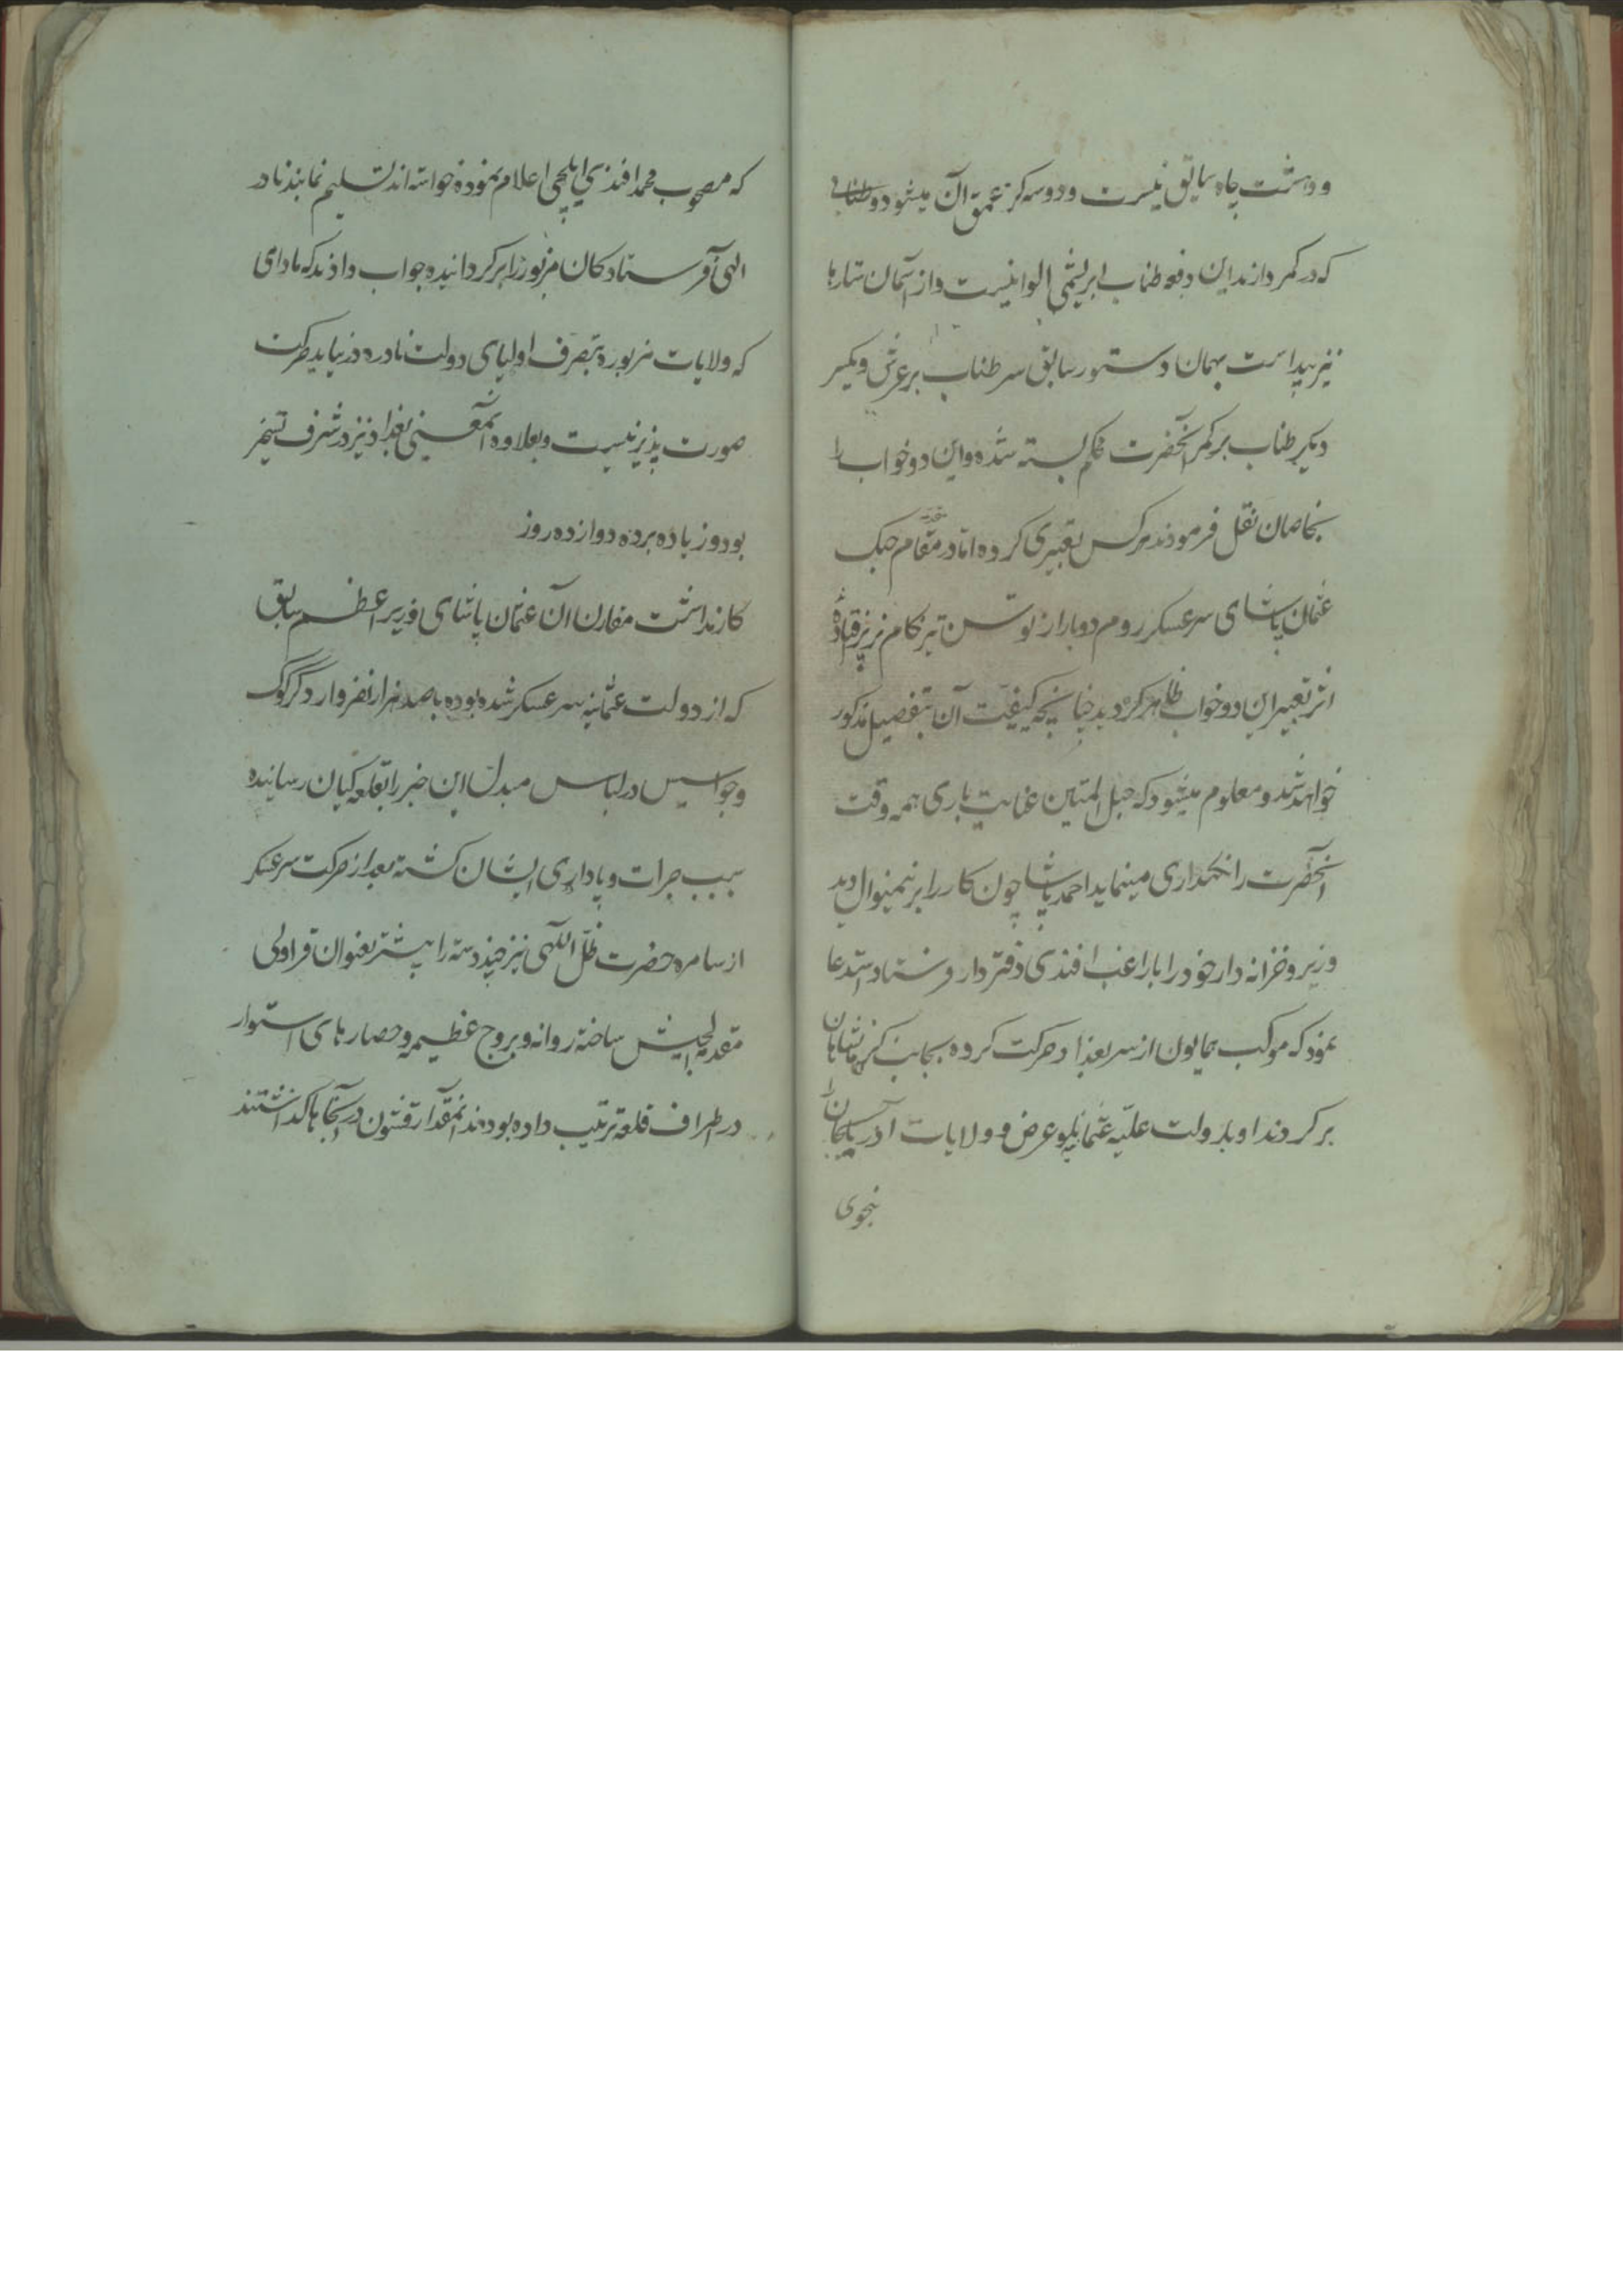 و دشت چاه سابق نیست و دو سه کز عمق آن میشود و طنابی
که در کمر دارند این دفعه طناب ابریشمی الوانیست و از آسمان ستارها
نیز پیداست بهمان دستور سابق سر طناب بر عرش و یکسر
دیکر طناب بر کمر آنحضرت محکم بسته شده و این دو خواب را
بخاصان نقل فرمودند هرکس تعبیری کرده اما در مقام جنک
عثمان پاشای سرعسکر روم دوبار از توسن تیزکام بزیر افتاده
اثر تعبیر این دو خواب ظاهر کردید چنانچه کیفیت آن بتفصیل مذکور
خواهد شد و معلوم میشود که حبل المتین عنایت باری همه وقت
آنحضرت را نکهداری مینماید احمد پاشا چون کار را بر نهمنوال دید
وزیر و خزانه دار خود را با راغب افندی دفتردار فرستاد استدعا
نمود که موکب همایون از سر بغداد حرکت کرده بجانب کرمانشاهان
برکردند او بدولت علیه عثمانیه عرض و ولایات آذربایجان را
بنحوی
که مصحوب محمد افندی ایلچی اعلام نموده خواسته اند تسلیم نمایند نادر
الهی فرستادکان مزبور را برکردانیده جواب دادند که مادامی
که ولایات مزبوره بتصرف اولیای دولت نادره در نیاید حرکت
صورت پذیر نیست و بعلاوه آنمعنی بغداد نیز در شرف تسخیر
بود و زیاده بر ده دوازده روز
کار نداشت مقارن آن عثمان پاشای وزیر اعظم سابق
که از دولت عثمانیه سرعسکر شده بوده با صد هزار نفر وارد کرکوک
و جواسیس در لباس مبدل این خبر را بقلعه کیان رسانیده
سبب جرات و پاداری ایشان کشته بعد از حرکت سرعسکر
از سامره حضرت ظل اللهی نیز چند دسته را پیشتر بعنوان قراولی
مقدمه الجیش ساخته روانه و بروج عظیمه و حصارهای استوار
در اطراف قلعه ترتیب داده بودند آنمقدار قشون در آنجاها کذاشتند